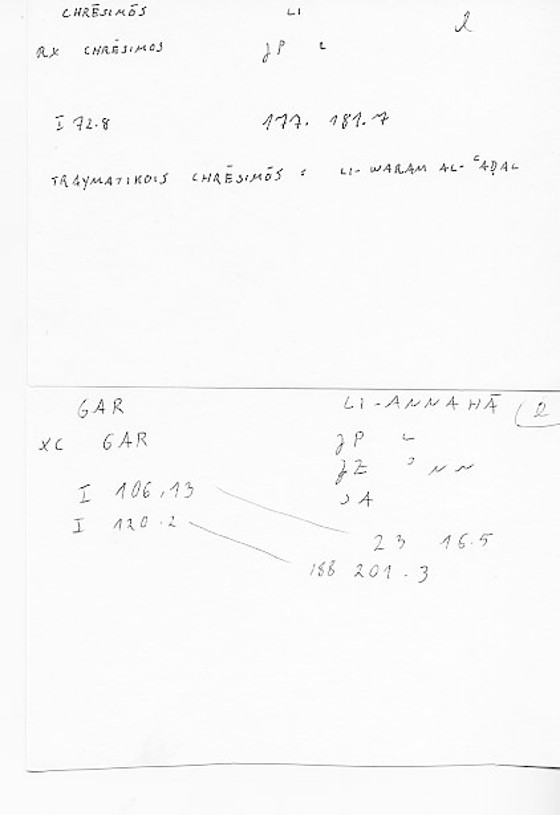 CHRĒSIMŌS LI 2
RX CHRĒSIMOS JP L
I 72.8 177. 181.7
TRAYMATIKOIS CHRĒSIMŌS : LI-WARAM AL-ʿAḌAL
GAR LI-ANNAHĀ 2
XC GAR JP L
JZ ʾNN
I 106,13 ʾA
I 120.2 23 16.5
188 201.3